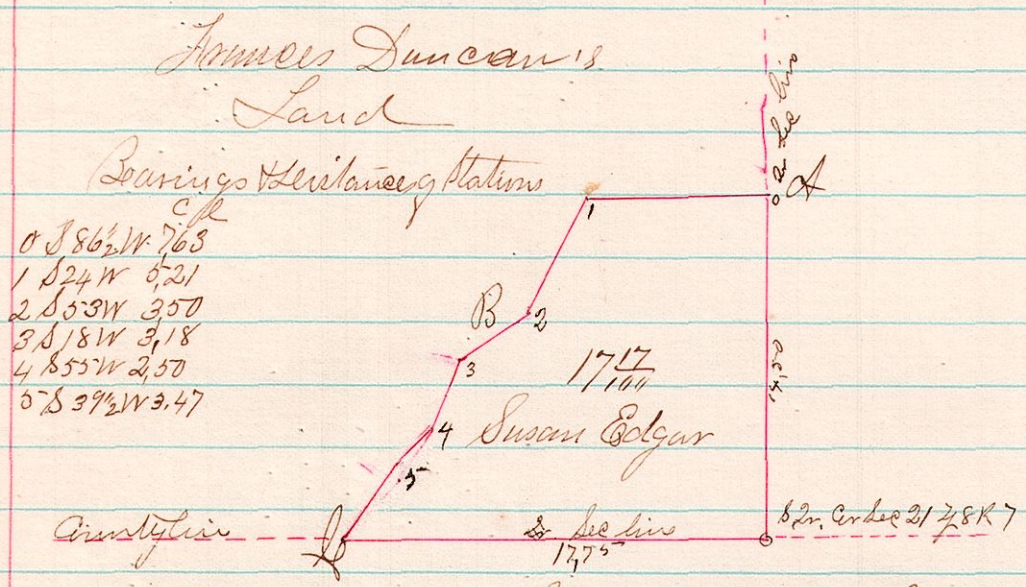 Frances Duncan's
Land
Bearings & Distance of Stations
C L
0 S 86½ W 7,63
1 S 24 W 5,21
2 S 53 W 3,50
3 S 18 W 3,18
4 S 55 W 2,50
5 S 39½ W 3.47
Qr Sec line
0 A
1
B 2
3
17 17/100
14,50
4 Susan Edgar
5
County line
Qr Sec line
17,75
S Qr. Cor Sec 21 T 48 R 7